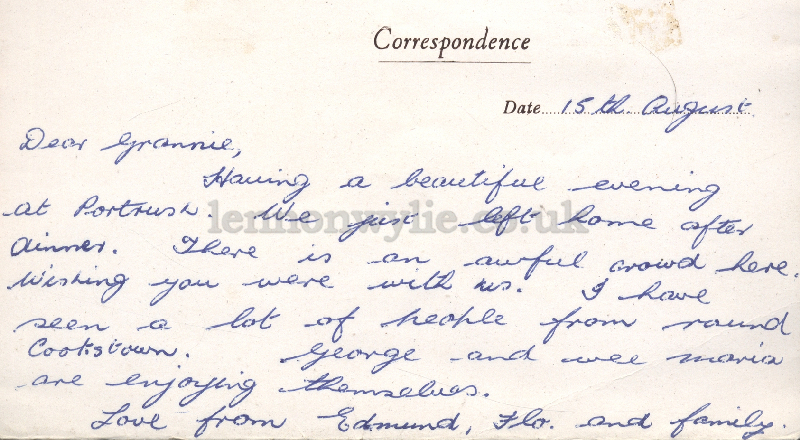 Correspondence
Date 15th. August
Dear Grannie,
Having a beautiful evening
at Portrush. We just left home after
dinner. There is an awful crowd here.
Wishing you were with us. I have
seen a lot of people from round
Cookstown. George and wee Maria
are enjoying themselves.
Love from Edmund, Flo. and family.
lennonwylie.co.uk